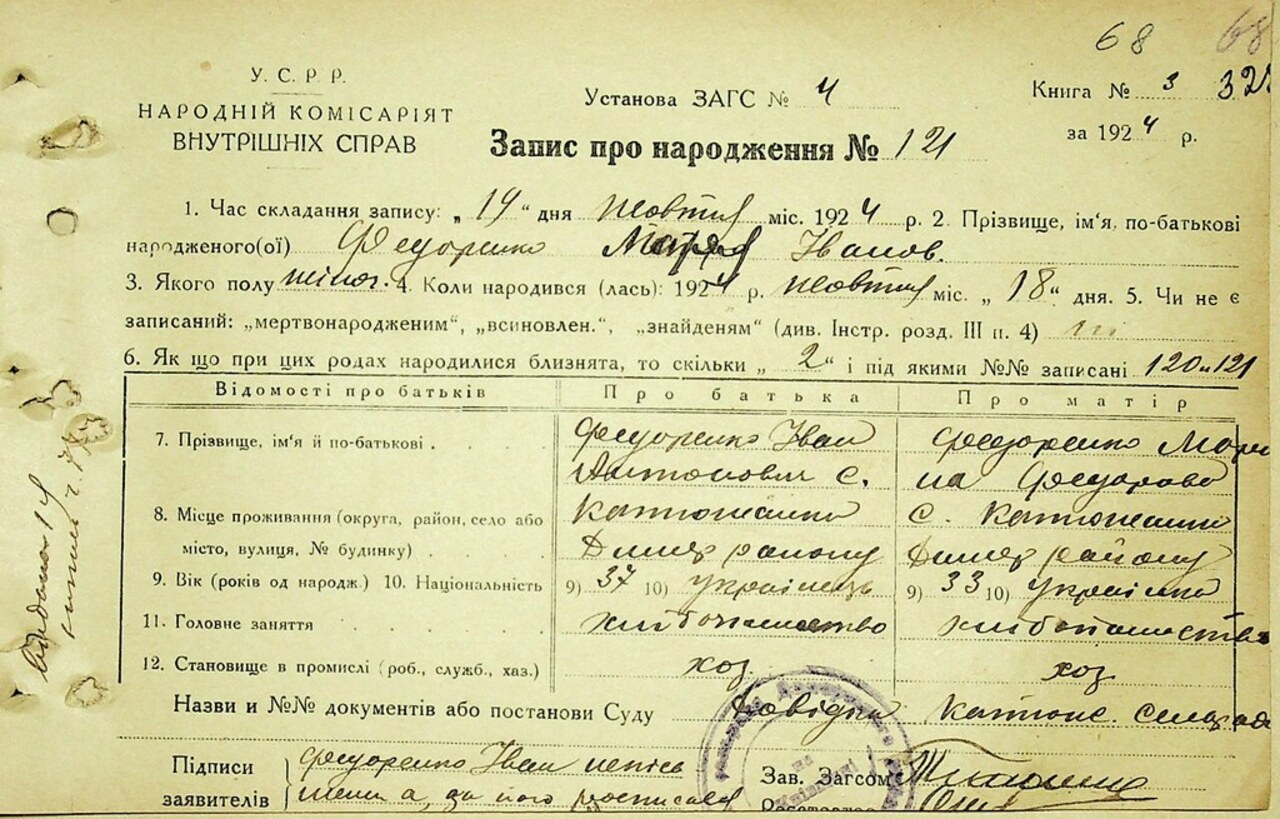 68 68
У. С. Р. Р.
НАРОДНІЙ КОМІСАРІЯТ
ВНУТРІШНІХ СПРАВ
Установа ЗАГС № 4
Книга № 3 32
за 1924 р.
Запис про народження № 121
1. Час складання запису: „ 19 “ дня жовтня міс. 1924 р. 2. Прізвище, ім'я, по-батькові
народженого(ої) Федоренко Марія Іванов.
3. Якого полу жіноч. 4. Коли народився (лась): 1924 р. жовтня міс. „ 18 “ дня. 5. Чи не є
записаний: „мертвонародженим“, „всиновлен.“, „знайденям“ (див. Інстр. розд. III п. 4) ні
6. Як що при цих родах народилися близнята, то скільки „ 2 “ і під якими №№ записані 120 и 121
Відомості про батьків Про батька Про матір
7. Прізвище, ім'я й по-батькові Федоренко Іван Федоренко Мари
Антонович с. на Федорова
8. Місце проживання (округа, район, село або Катюжанка с. Катюжанки
місто, вулиця, № будинку) Димер району Димер району
9. Вік (років од народж.) 10. Національність 9) 37 10) українець 9) 33 10) українка
11. Головне заняття хлібопашество хлібопашество
12. Становище в промислі (роб., служб., хаз.) хоз. хоз.
Назви и №№ документів або постанови Суду Довідка Катюж. сельрад
Підписи Федоренко Іван непись
заявителів менний, за його росписався
Зав. Загсом